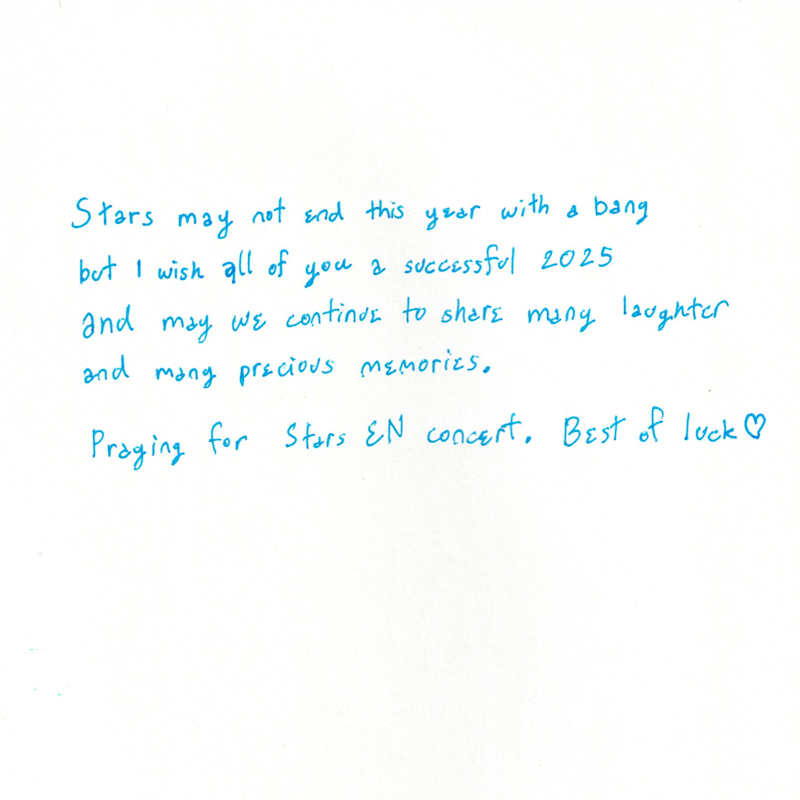 Stars may not end this year with a bang
but I wish all of you a successful 2025
and may we continue to share many laughter
and many precious memories.
Praying for Stars EN concert. Best of luck♡